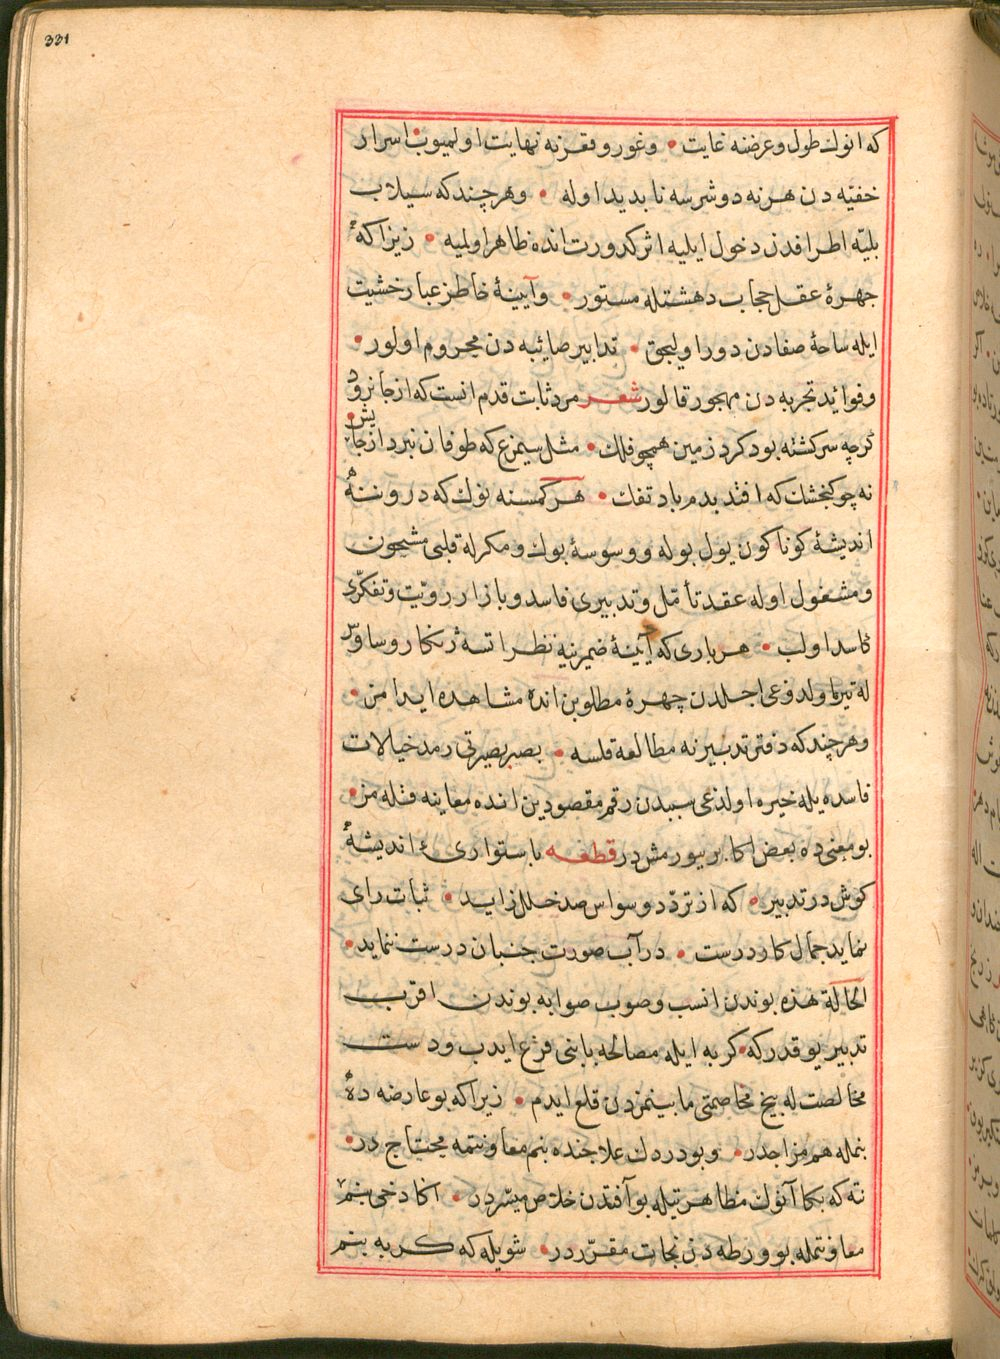 331
كه انوك طول و عرضنه غايت • وغور و قعرنه نهايت اولميوب اسرار
خفيّه دن هر نه دوشرسه ناپديد اوله • وهر چند كه سيلاب
بليّه اطرافدن دخول ايليه اثر كدورت انده ظاهر اولميه • زيرا كه
چهرهٔ عقل حجاب دهشتله مستور • وآيينهٔ خاطر غبار خشيت
ايله ساحهٔ صفادن دور اوليجق • تدابير صائبه دن محروم اولور •
و فوائد تجربه دن مهجور قالور شعر مرد ثابت قدم انست كه از جا نرود
كرچه سركشته بود كرد زمين همچو فلك • مثل سيمرغ كه طوفان نبرد از جايش
نه چو كنجشك كه افتد بدم باد تفك • هر كمسنه نوك كه دروننهٔ
انديشهٔ كوناكون يول بوله و وسوسهٔ بوك و مكرله قلبى مشحون
و مشغول اوله عقد تأمّل و تدبيرى فاسد و بازار رويّت و تفكّرى
كاسد اولب • هر بارى كه آيينهٔ ضميرنيه نظر اتسه ژنكار وساوس
له تيره اولدوغى اجلدن چهرهٔ مطلوبن انده مشاهده ايدامز •
و هر چند كه دفتر تدبيرنه مطالعه قلسه • بصر بصيرتى رمد خيالات
فاسده يله خيره اولدغى سببدن رقم مقصودين انده معاينه قله مز •
بو معنى ده بعض اكابر بيورمشدر قطعه باستوارىء انديشهٔ
كوش در تدبير • كه از تردّد وسواس صد خلل زايد • ثبات راى
نمايد جمال كار درست • در آب صورت جنبان درست ننمايد •
الحالة هذه بوندن انسب و صوب صوابه بوندن اقرب
تدبير يوقدر كه كربه ايله مصالحه بابنى فرع ايدب و دست
مخالصت له بيخ مخاصمتى مابينمزدن قلع ايدم • زيرا كه بو عارضه ده
بنمله هم مزاجدر • و بو دردك علاجنده بنم معاونتمه محتاج در •
نته كه بكا آنوك مظاهرتيله بو آفتدن خلاص ميسّردر • اكا دخى بنم
معاونتمله بو ورطه دن نجات مقرّردر • شويله كه كربه بنم